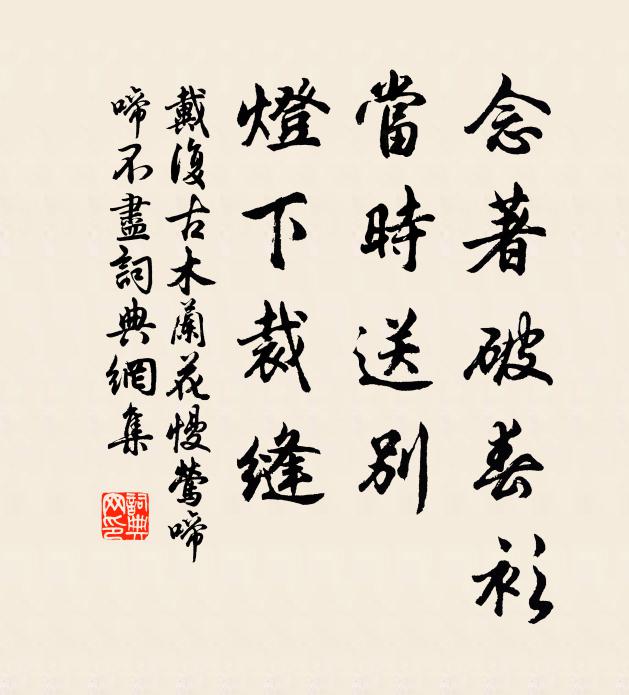 念著破春衫
當時送別
燈下裁縫
戴復古木蘭花慢鶯啼
啼不盡詞典網集
詞典網印